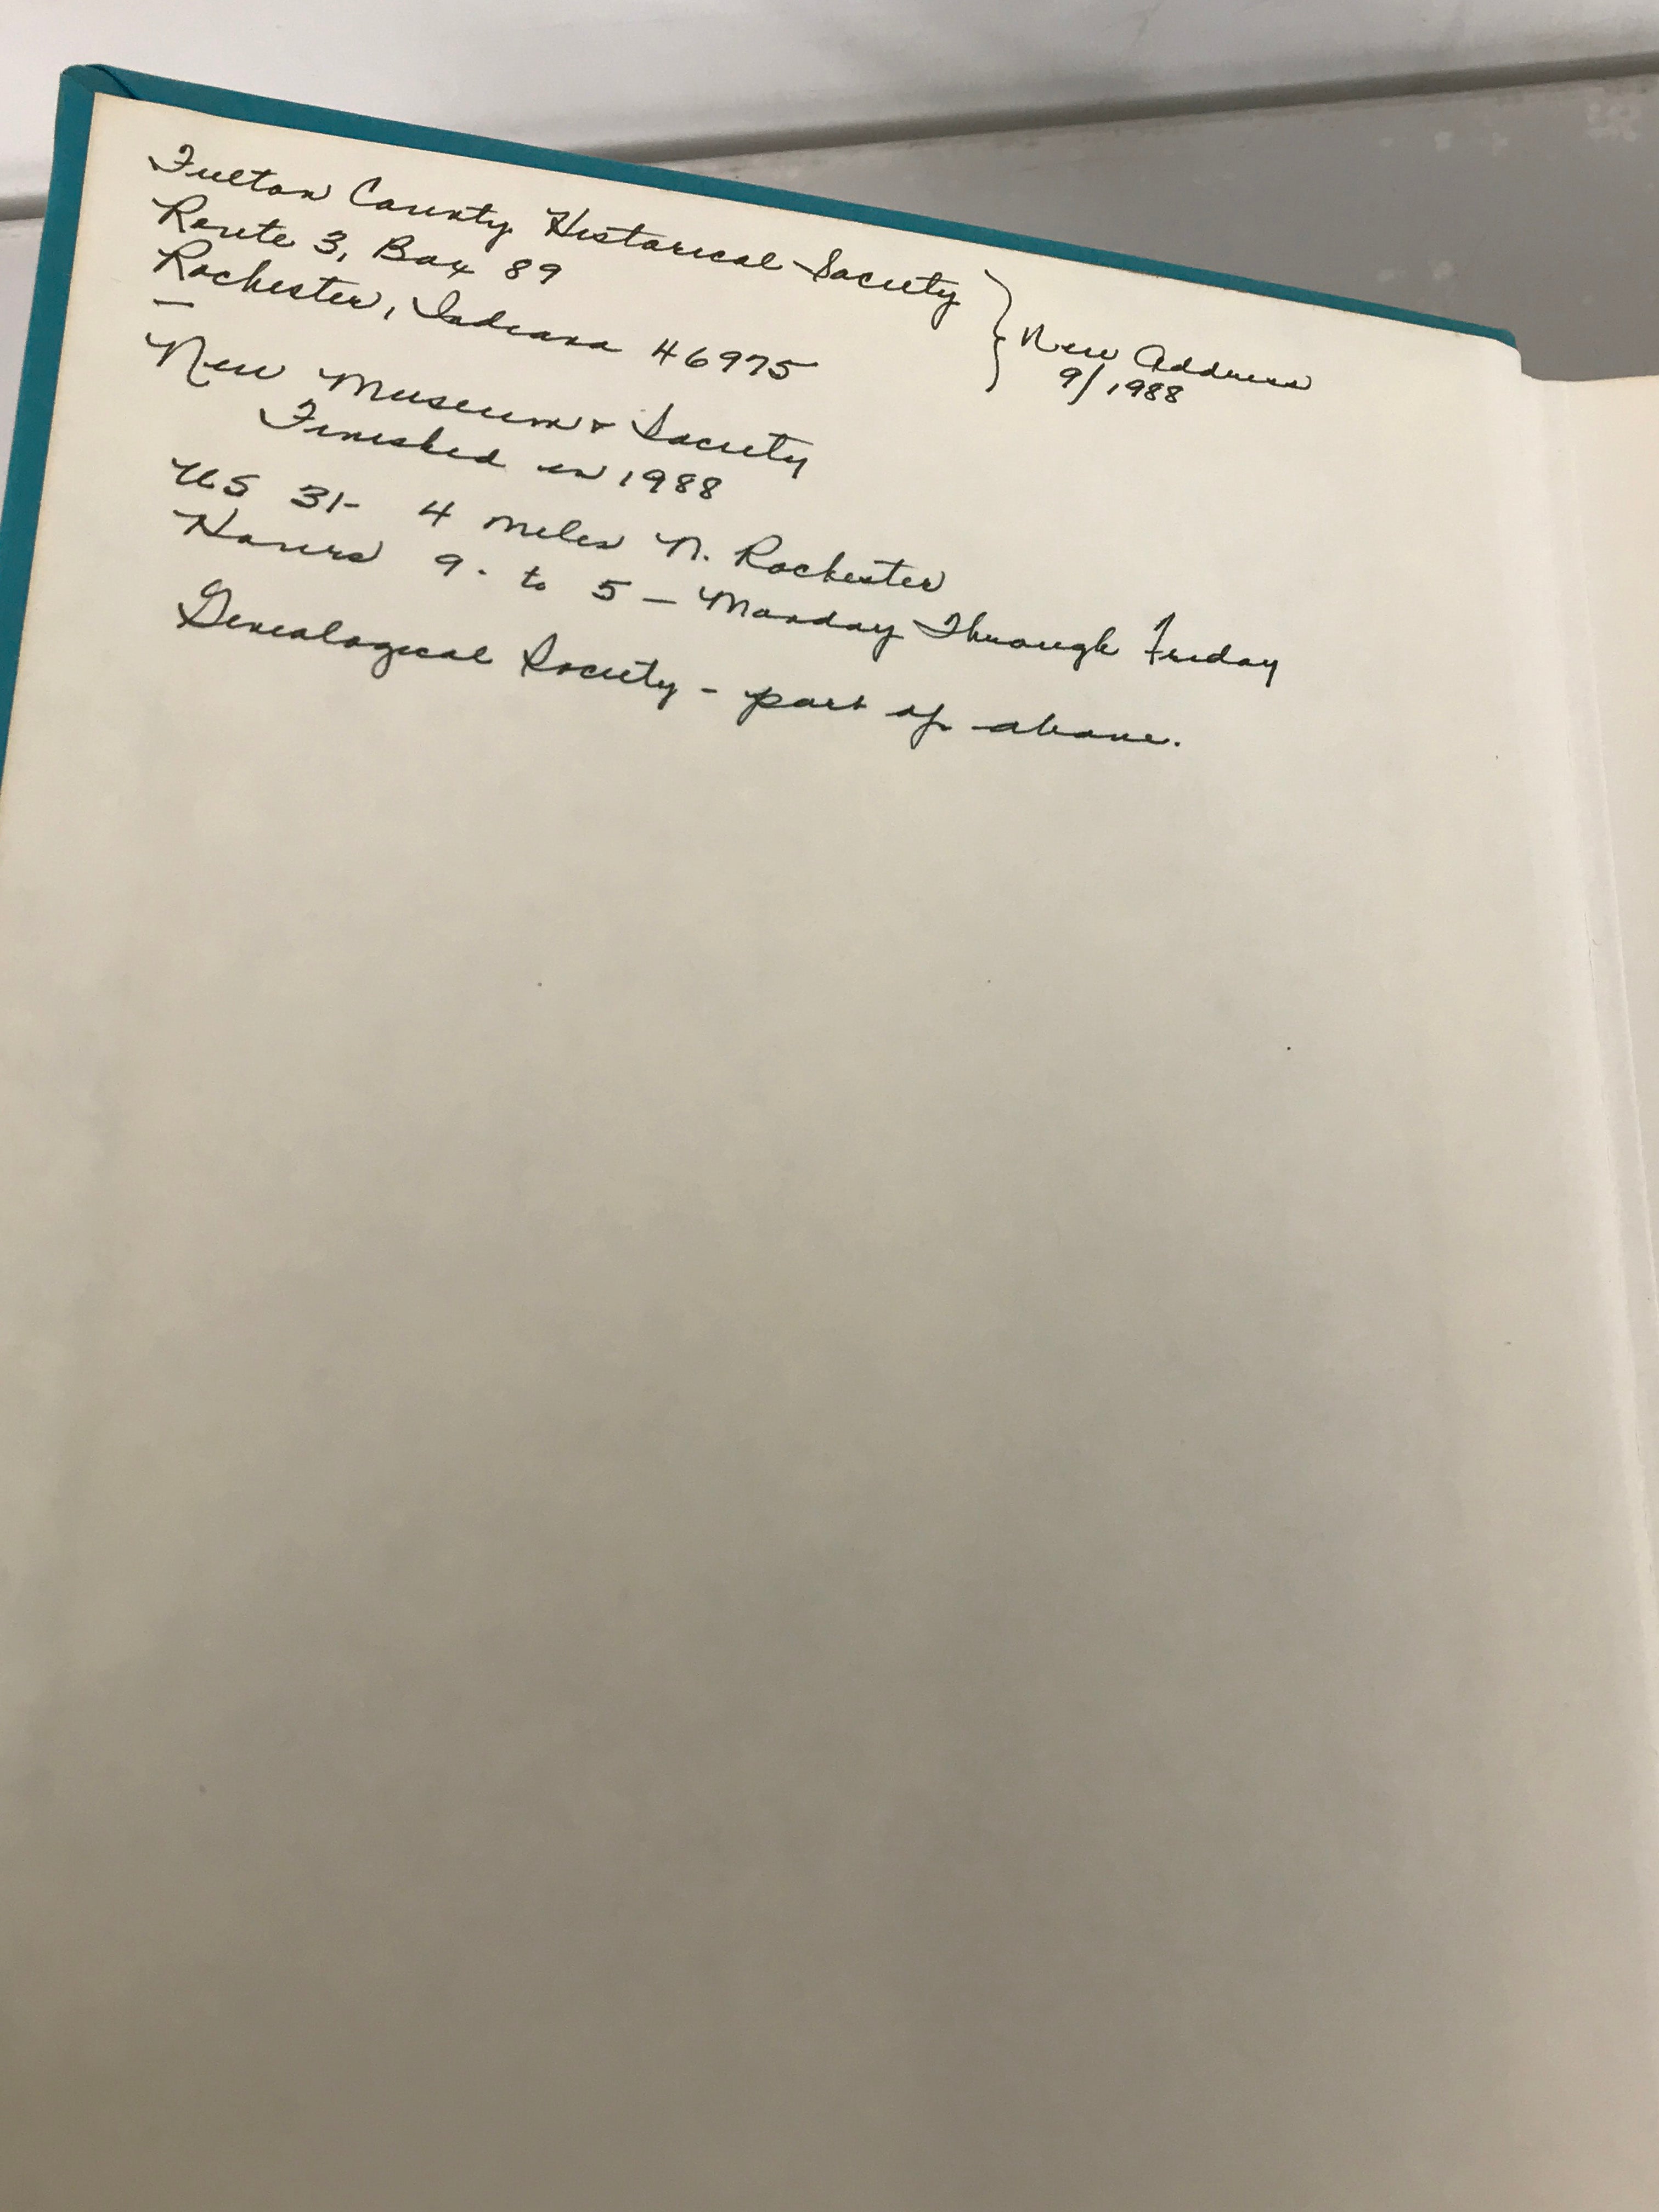 Fulton County Historical Society
Route 3, Box 89
Rochester, Indiana 46975
} New Address
9/1988
New Museum & Society
Finished in 1988
US 31- 4 miles N. Rochester
Hours 9. to 5 — Monday Through Friday
Genealogical Society - part of above.